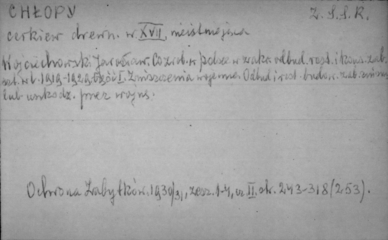 CHŁOPY
Z.S.S.R.
cerkiew drewn. w XVII nieistniejąca
Wojciechowski Jarosław. Co zrob. w Polsce w zakr. odbud. rest. i kons. zab.
od r. 1919-1929. Część I. Zniszczenia wojenne. Odbud. i rest. budow. zab. zniszcz.
lub uszkodz. przez wojnę.
Ochrona Zabytków. 1930/31, zesz. 1-4, cz II. str. 243-318 (253).